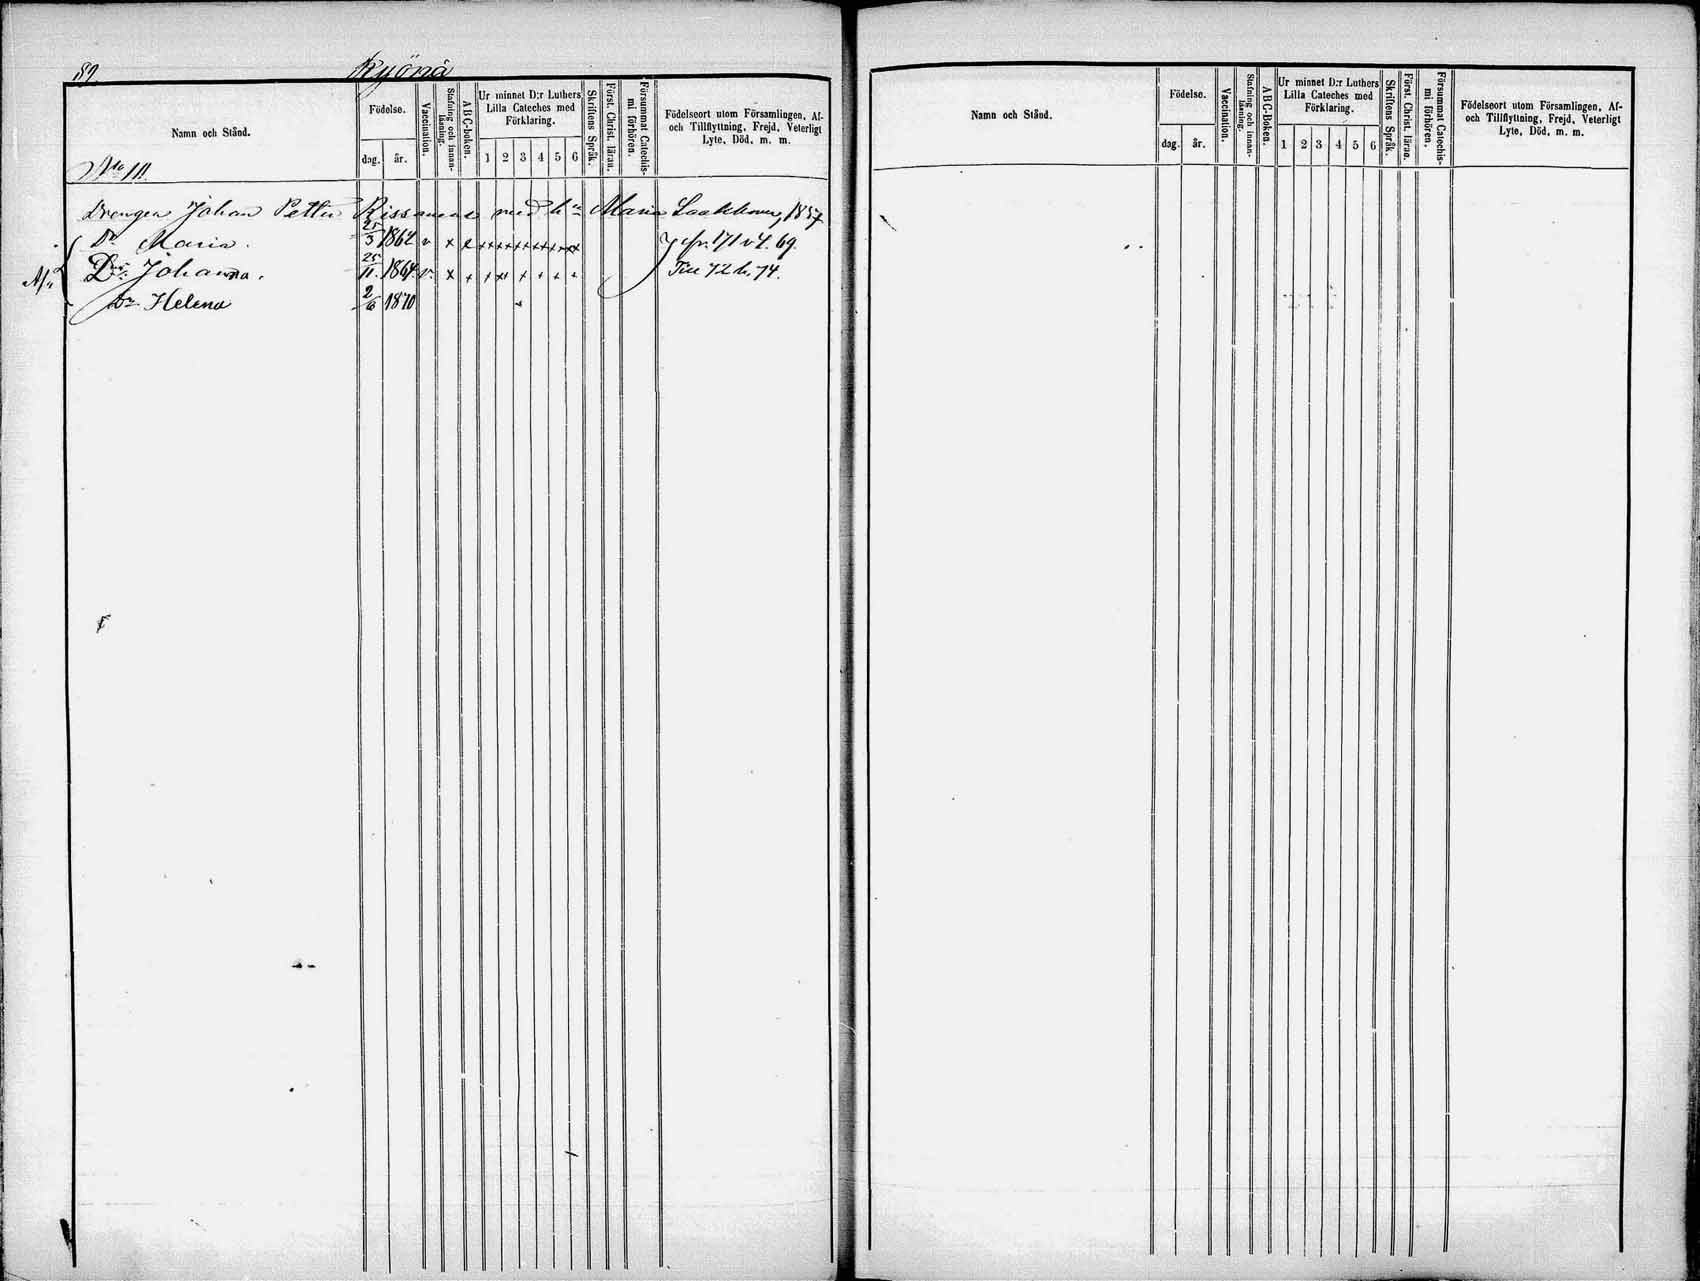 89.
Kyönä
Namn och Stånd.
Födelse.
dag. år.
Vaccination.
Stafning och innan-läsning.
ABC-boken.
Ur minnet D:r Luthers Lilla Cateches med Förklaring.
1 2 3 4 5 6
Skriftens Språk.
Först. Christ. läran.
Försummat Catechis-mi förhören.
Födelseort utom Församlingen, Af- och Tillflyttning, Frejd, Veterligt Lyte, Död, m. m.
No 111.
Drengen Johan Petter Rissanens med hu Maria Laakkonen, 1857
Dr Maria. 25/3 1862 v x x fr. 171 v 4. 69.
Dr Johanna. 25/11 1864 v x Till 72 h. 74.
Dr Helena 2/6 1870
Namn och Stånd.
Födelse.
dag. år.
Vaccination.
Stafning och innan-läsning.
ABC-Boken.
Ur minnet D:r Luthers Lilla Cateches med Förklaring.
1 2 3 4 5 6
Skriftens Språk.
Först. Christ. läran.
Försummat Catechis-mi förhören.
Födelseort utom Församlingen, Af- och Tillflyttning, Frejd, Veterligt Lyte, Död, m. m.